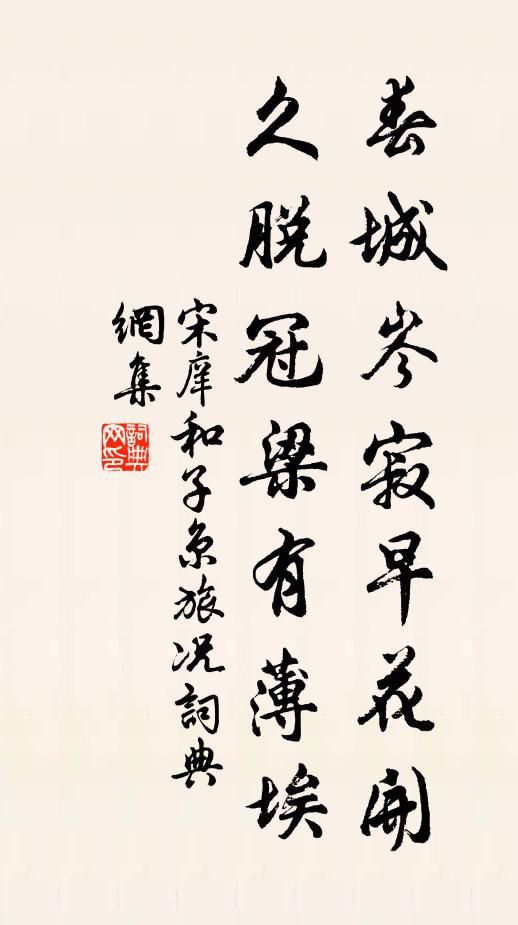 春城岑寂早花開
久脱冠梁有薄埃
宋庠和子京旅况詞典
網集
詞典
网印